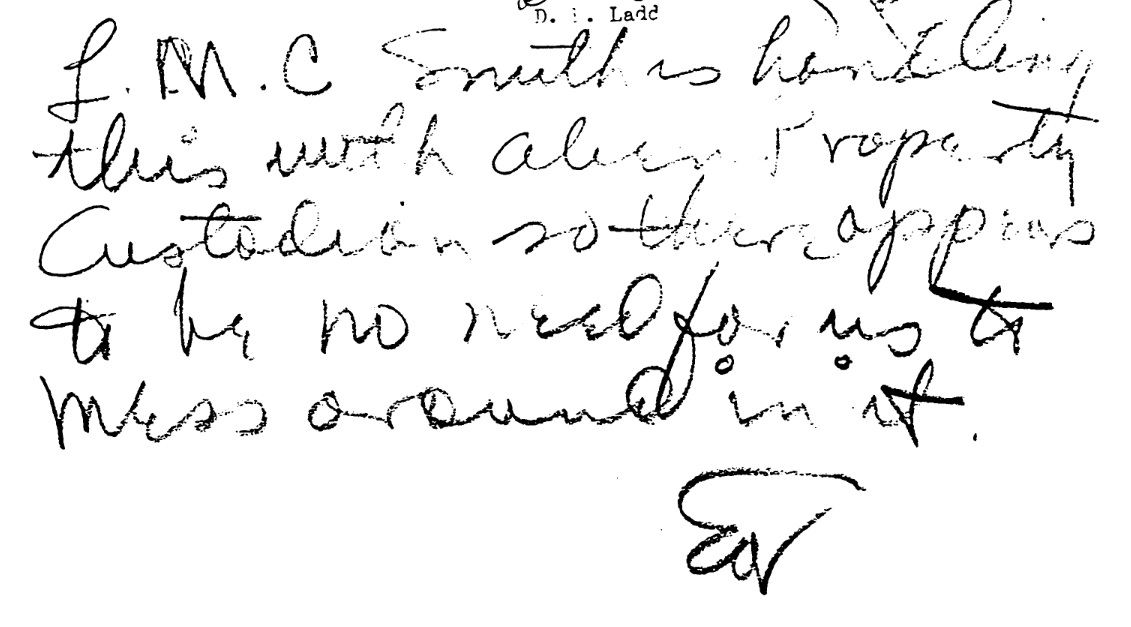 D. M. Ladd
L. M. C Smith is handling
this with Alien Property
Custodian so there appears
to be no need for us to
mess around in it.